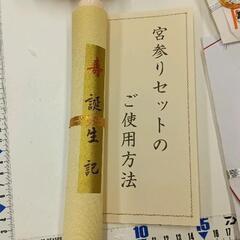 宮参りセットの
ご使用方法
寿
誕生記